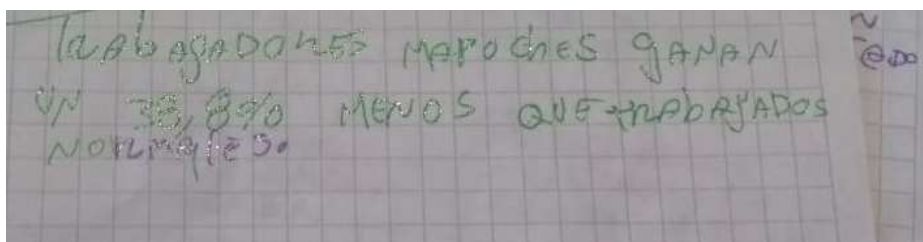 TRAbAJADORES MAPOChES GANAN
UN 38,8% MENOS QUE TRAbAJADOS
NORMALES.